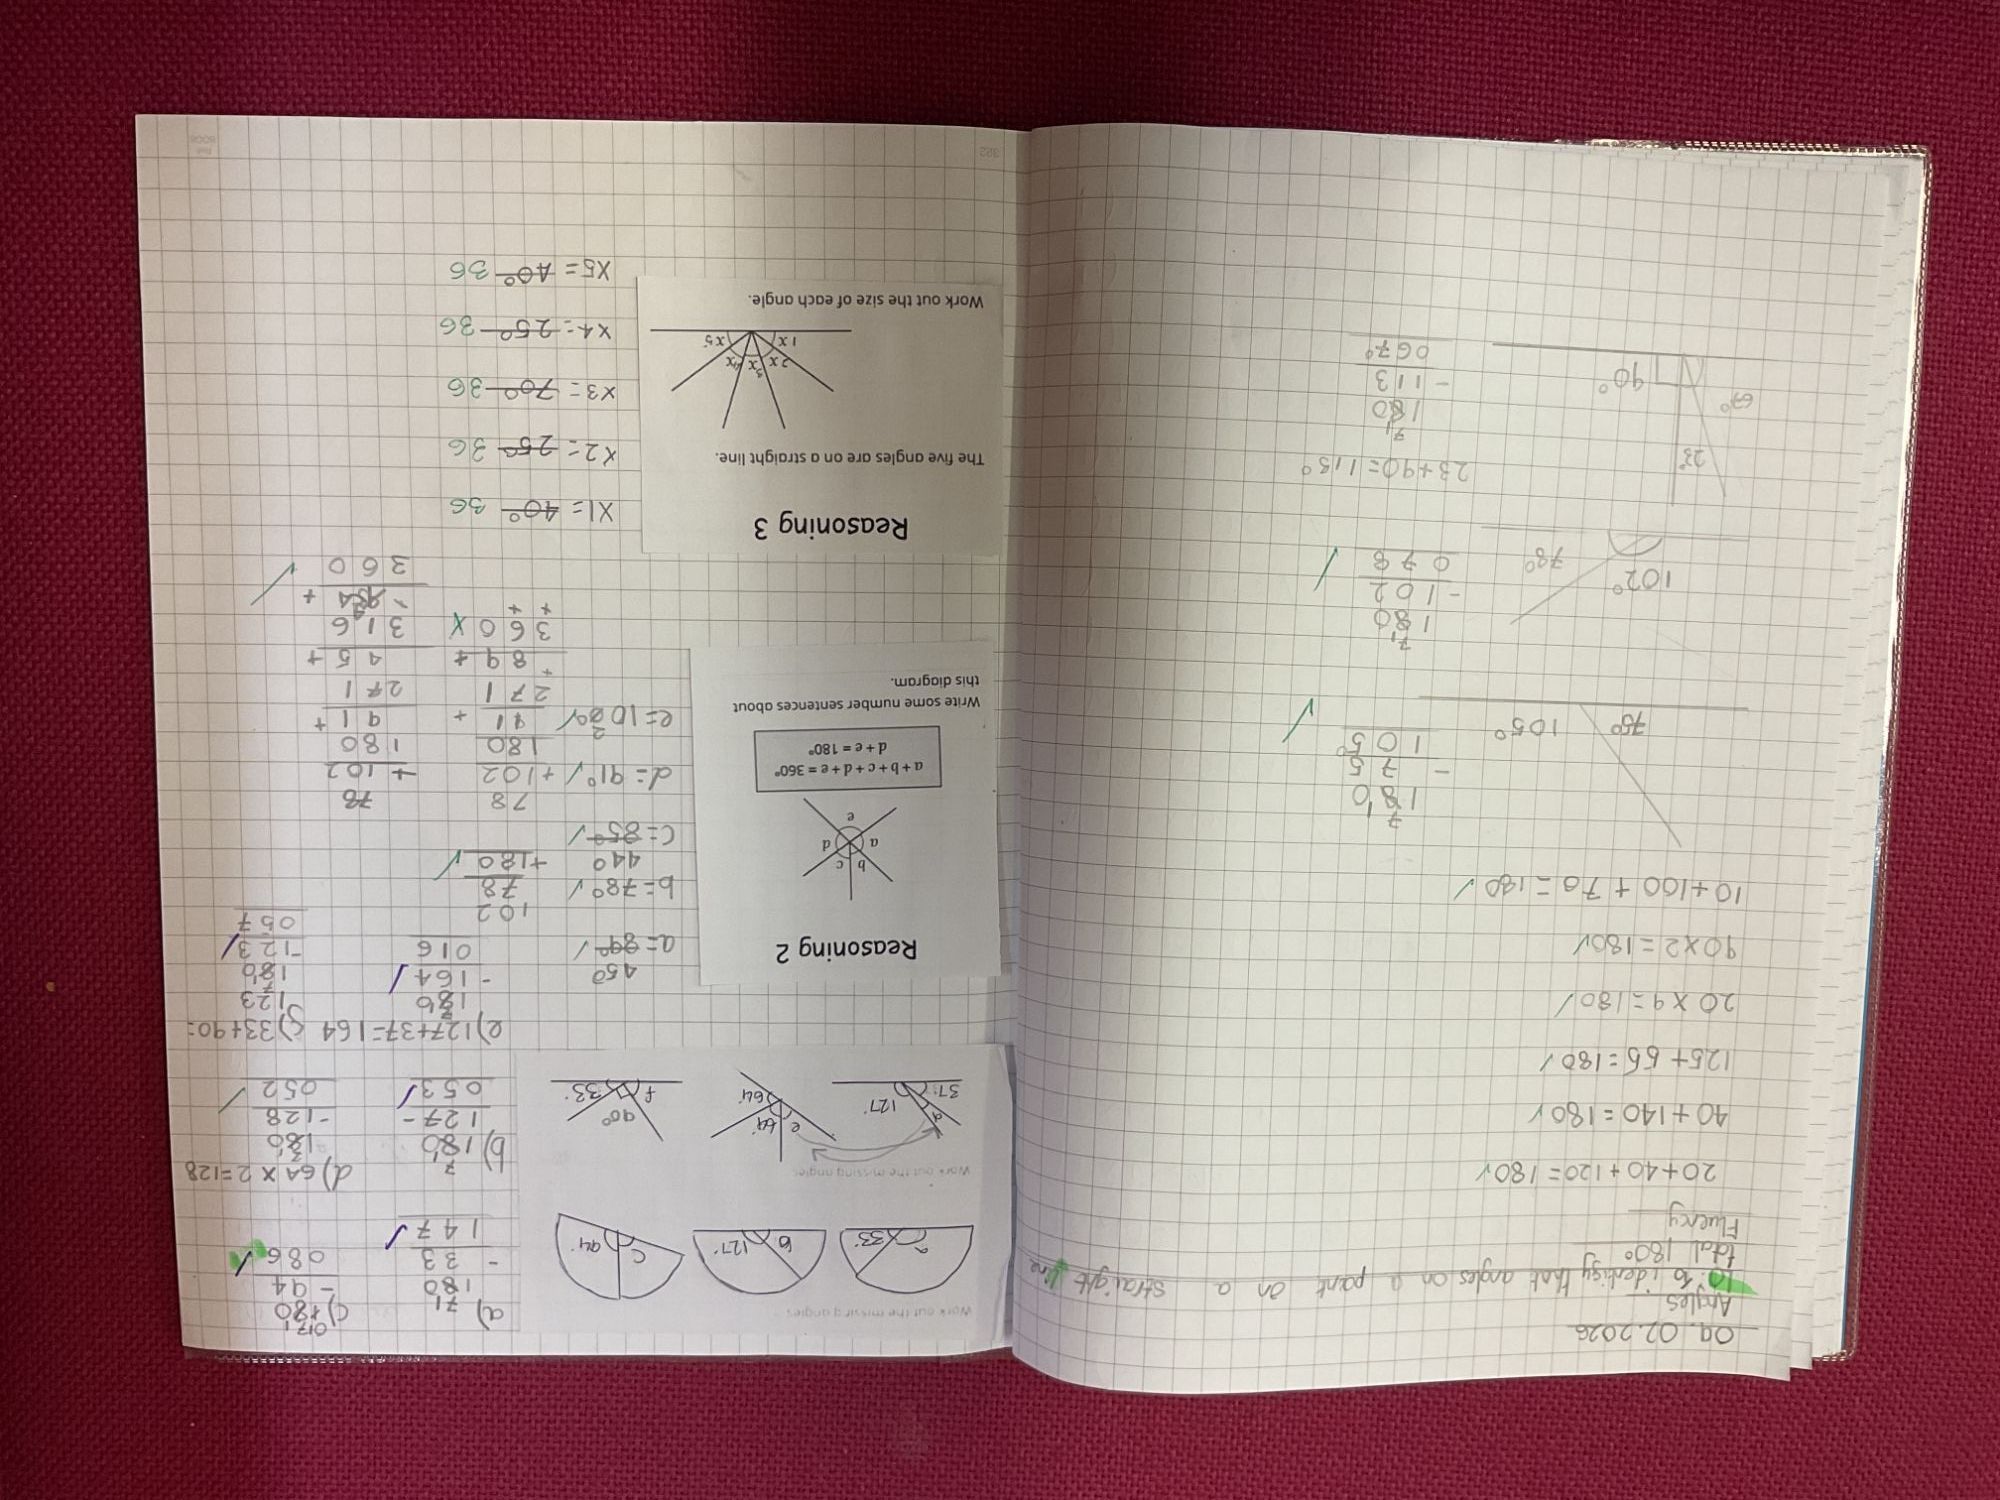 09.02.2026
Angles
LO: To identify that angles on a point on a straight line
total 180°
Fluency
20+40+120=180
40+140=180
125+55=180
20×9=180
90×2=180
10+100+70=180
75° 105°
180
- 75
105°
102° 78°
180
-102
078
23+90=113°
23°
67° 90°
180
-113
067°
Work out the missing angles
a 33°
b 127°
c 94°
Work out the missing angles
37° d 127°
e 64° 64°
90° f 33°
a) 180
- 33
147
c) 180
- 94
086
b) 180
127-
053
d) 64×2=128
180
-128
052
e) 127+37=164
180
-164
016
33+90=
123
180
-123
057
Reasoning 2
a b c d e
a+b+c+d+e=360°
d+e=180°
Write some number sentences about
this diagram.
450
a=89°
b=78°
440
c=85°
d=91°
e=102°
102
78
+180
78
+102
180
91 +
271
89 +
360
78
+102
180
91 +
271
45 +
316
44 +
360
Reasoning 3
The five angles are on a straight line.
1x 2x 3x 4x x5
Work out the size of each angle.
X1=40° 36
X2=25° 36
X3=70° 36
X4=25° 36
X5=40° 36
322